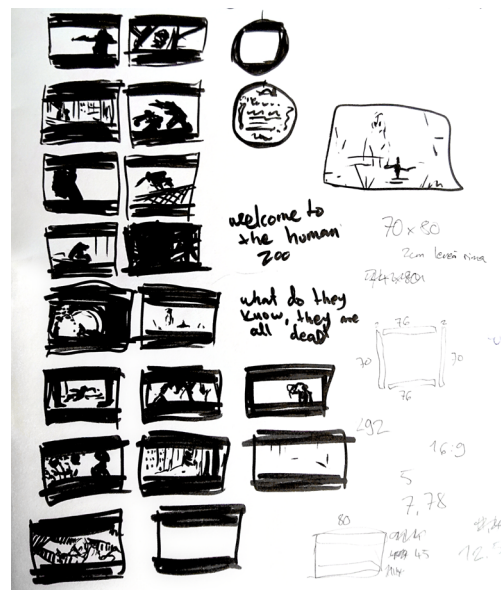 welcome to
the human
zoo
what do they
know, they are
all dead
70 x 80
2cm
76
70
70
76
292
16:9
5
7,78
80